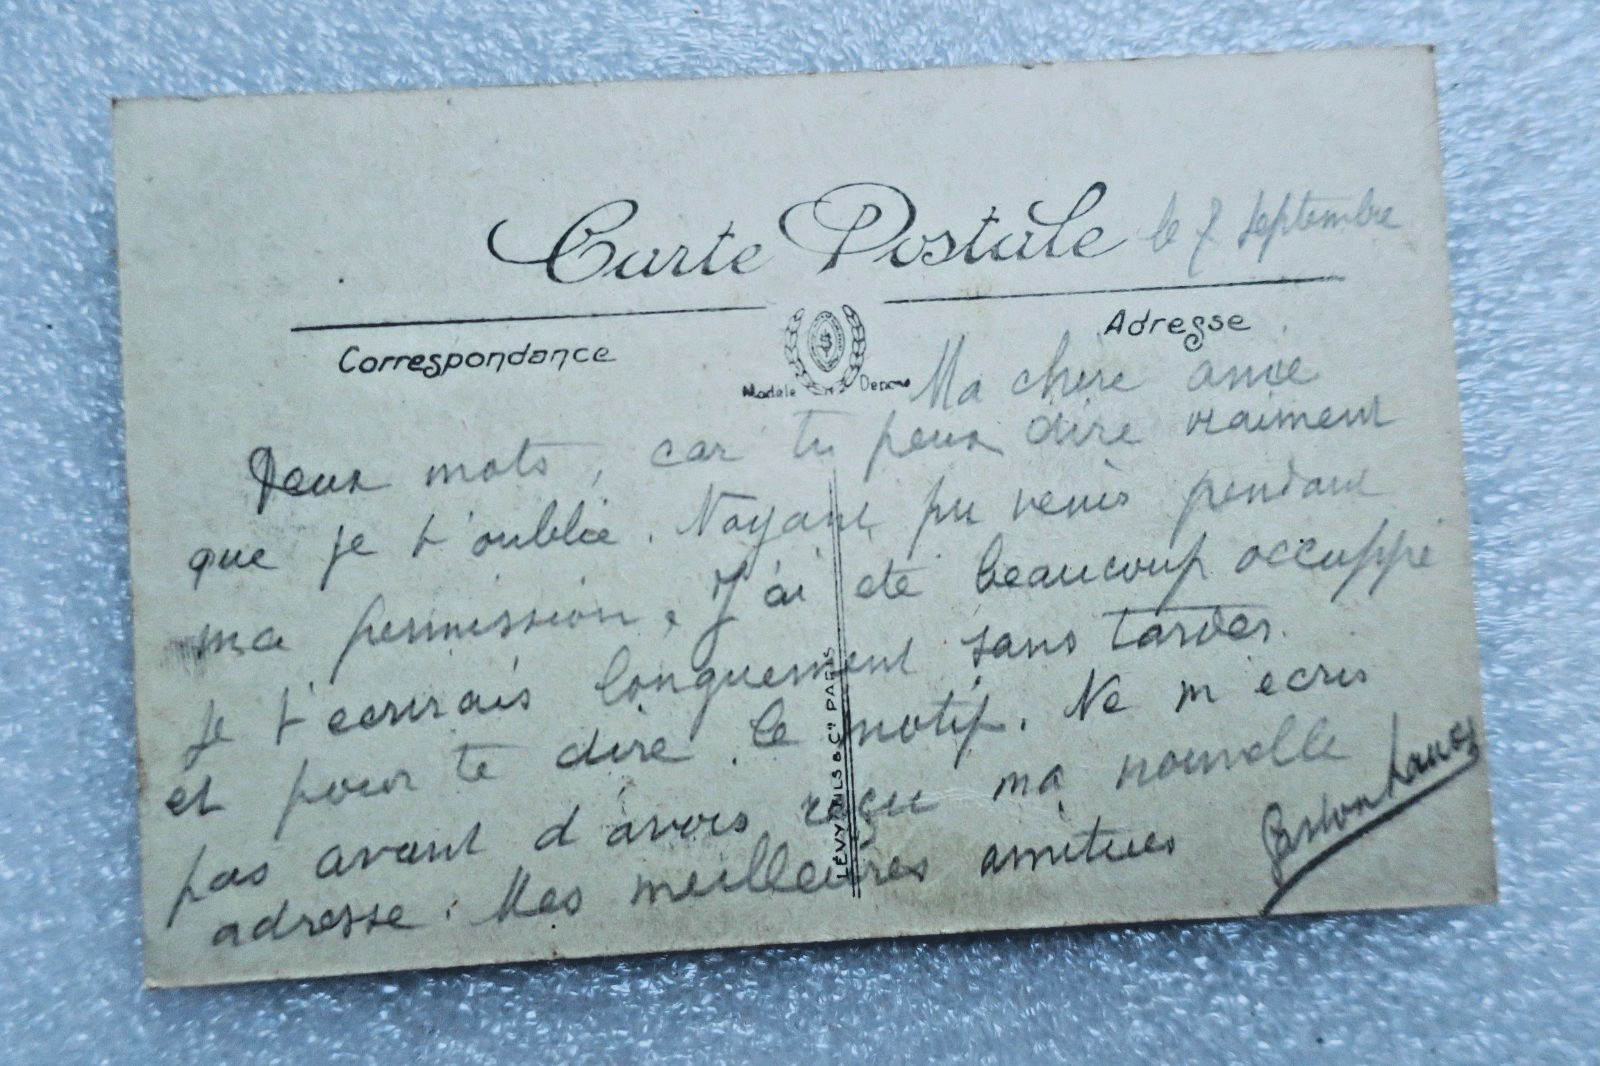 Carte Postale le 7 septembre
Correspondance
Adresse
Modèle Déposé
Ma chère amie
Deux mots, car tu peux dire vraiment
que je t'oublie. Nayant pu venir pendant
ma permission. J'ai eté beaucoup occuppé
je t'ecrirais longuement sans tarder
et pour te dire le motif. Ne m'ecris
pas avant d'avoir reçu ma nouvelle
adresse. Mes meilleures amitiés Gaston
LÉVY FILS & Cie PARIS